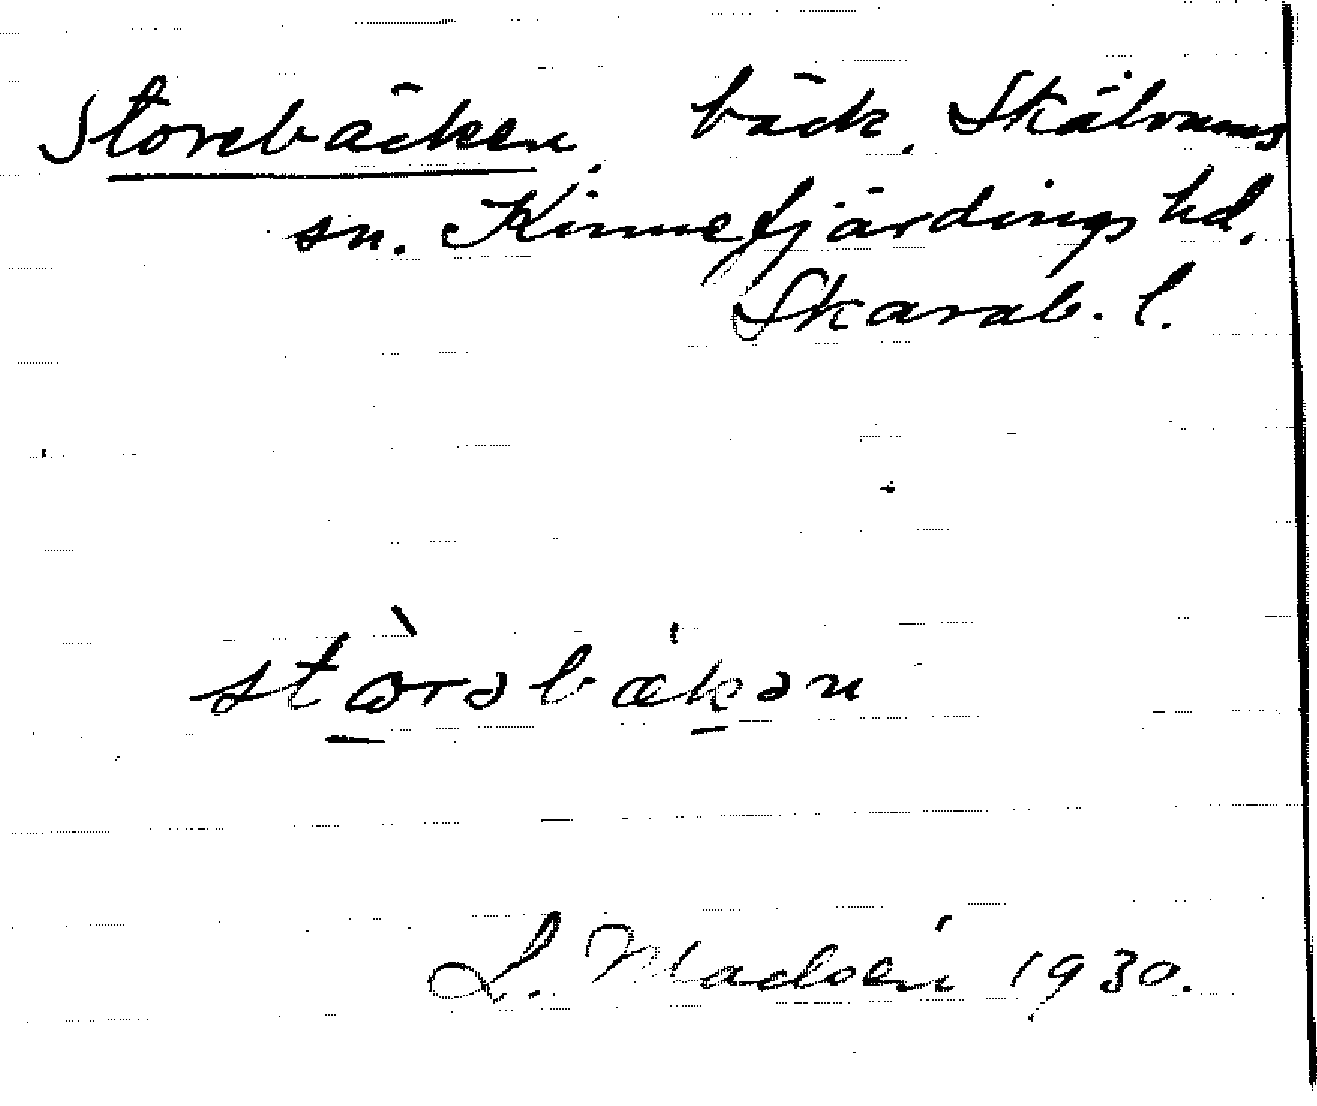 Storebäcken, bäck, Skälvums
sn. Kinnefjärdings hd.
Skarab. l.
stòrəbækən
L. Madsén 1930.